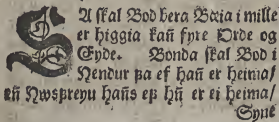 SA skal Bod bera Bæia i mille
er higgia kañ fyre Orde og
Eyde. Bonda skal Bod i
Hendur þa ef hañ er heima/
eñ Hwspreyu hañs eþ hñ er ei heima/
Syne